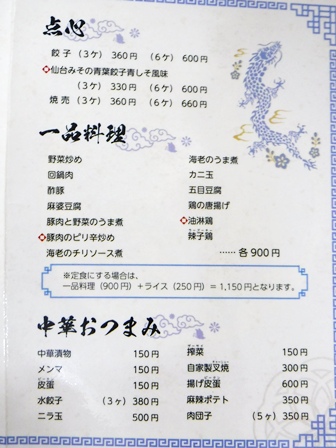 点心
餃子（3ヶ）360円（6ヶ）600円
仙台みその青葉餃子青しそ風味
（3ヶ）330円（6ヶ）600円
焼売（3ヶ）360円（6ヶ）660円
一品料理
野菜炒め
回鍋肉
酢豚
麻婆豆腐
豚肉と野菜のうま煮
豚肉のピリ辛炒め
海老のチリソース煮
海老のうま煮
カニ玉
五目豆腐
鶏の唐揚げ
油淋鶏
辣子鶏
……各900円
※定食にする場合は、
一品料理（900円）+ライス（250円）= 1,150円となります。
中華おつまみ
中華漬物 150円
メンマ 150円
皮蛋 150円
水餃子（3ヶ）380円
ニラ玉 500円
搾菜 150円
自家製叉焼 300円
揚げ皮蛋 600円
麻辣ポテト 350円
肉団子（5ヶ）350円